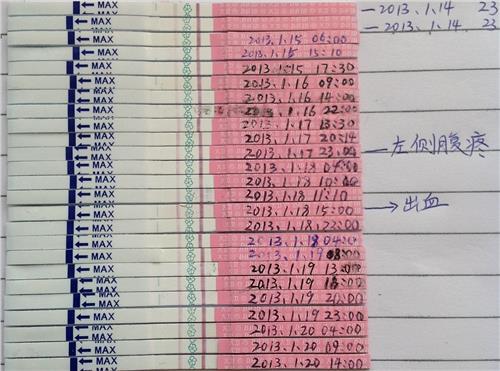 MAX —2013.1.14 23
MAX —2013.1.14 23
MAX 2013.1.15 06:00
MAX 2013.1.15 15:10
MAX 2013.1.15 17:30
MAX 2013.1.16 09:00
MAX 2013.1.16 14:00
MAX 2013.1.16 22:00
MAX 2013.1.17 13:30
MAX 2013.1.17 20:14
MAX 2013.1.17 23:00 —左侧腹疼
MAX 2013.1.18
MAX 2013.1.18 10:00
MAX 2013.1.18 11:10
MAX 2013.1.18 15:00 →出血
MAX 2013.1.18 23:00
MAX 2013.1.18 04:00
MAX 2013.1.19 08:00
MAX 2013.1.19 13:00
MAX 2013.1.19
MAX 2013.1.19 20:00
MAX 2013.1.19 23:00
MAX 2013.1.20 04:00
MAX 2013.1.20 09:00
MAX 2013.1.20 14:00